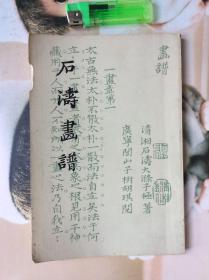 畫譜
清湘石濤大滌子極著
廣寧閭山子樹胡琪閱
一畫章第一
太古無法太朴不散太朴一散而法自立矣法于何
石濤畫譜
立立于一畫一畫者眾有之本萬象之根見用于神
藏用于人而世人不知所以一畫之法乃自我立立